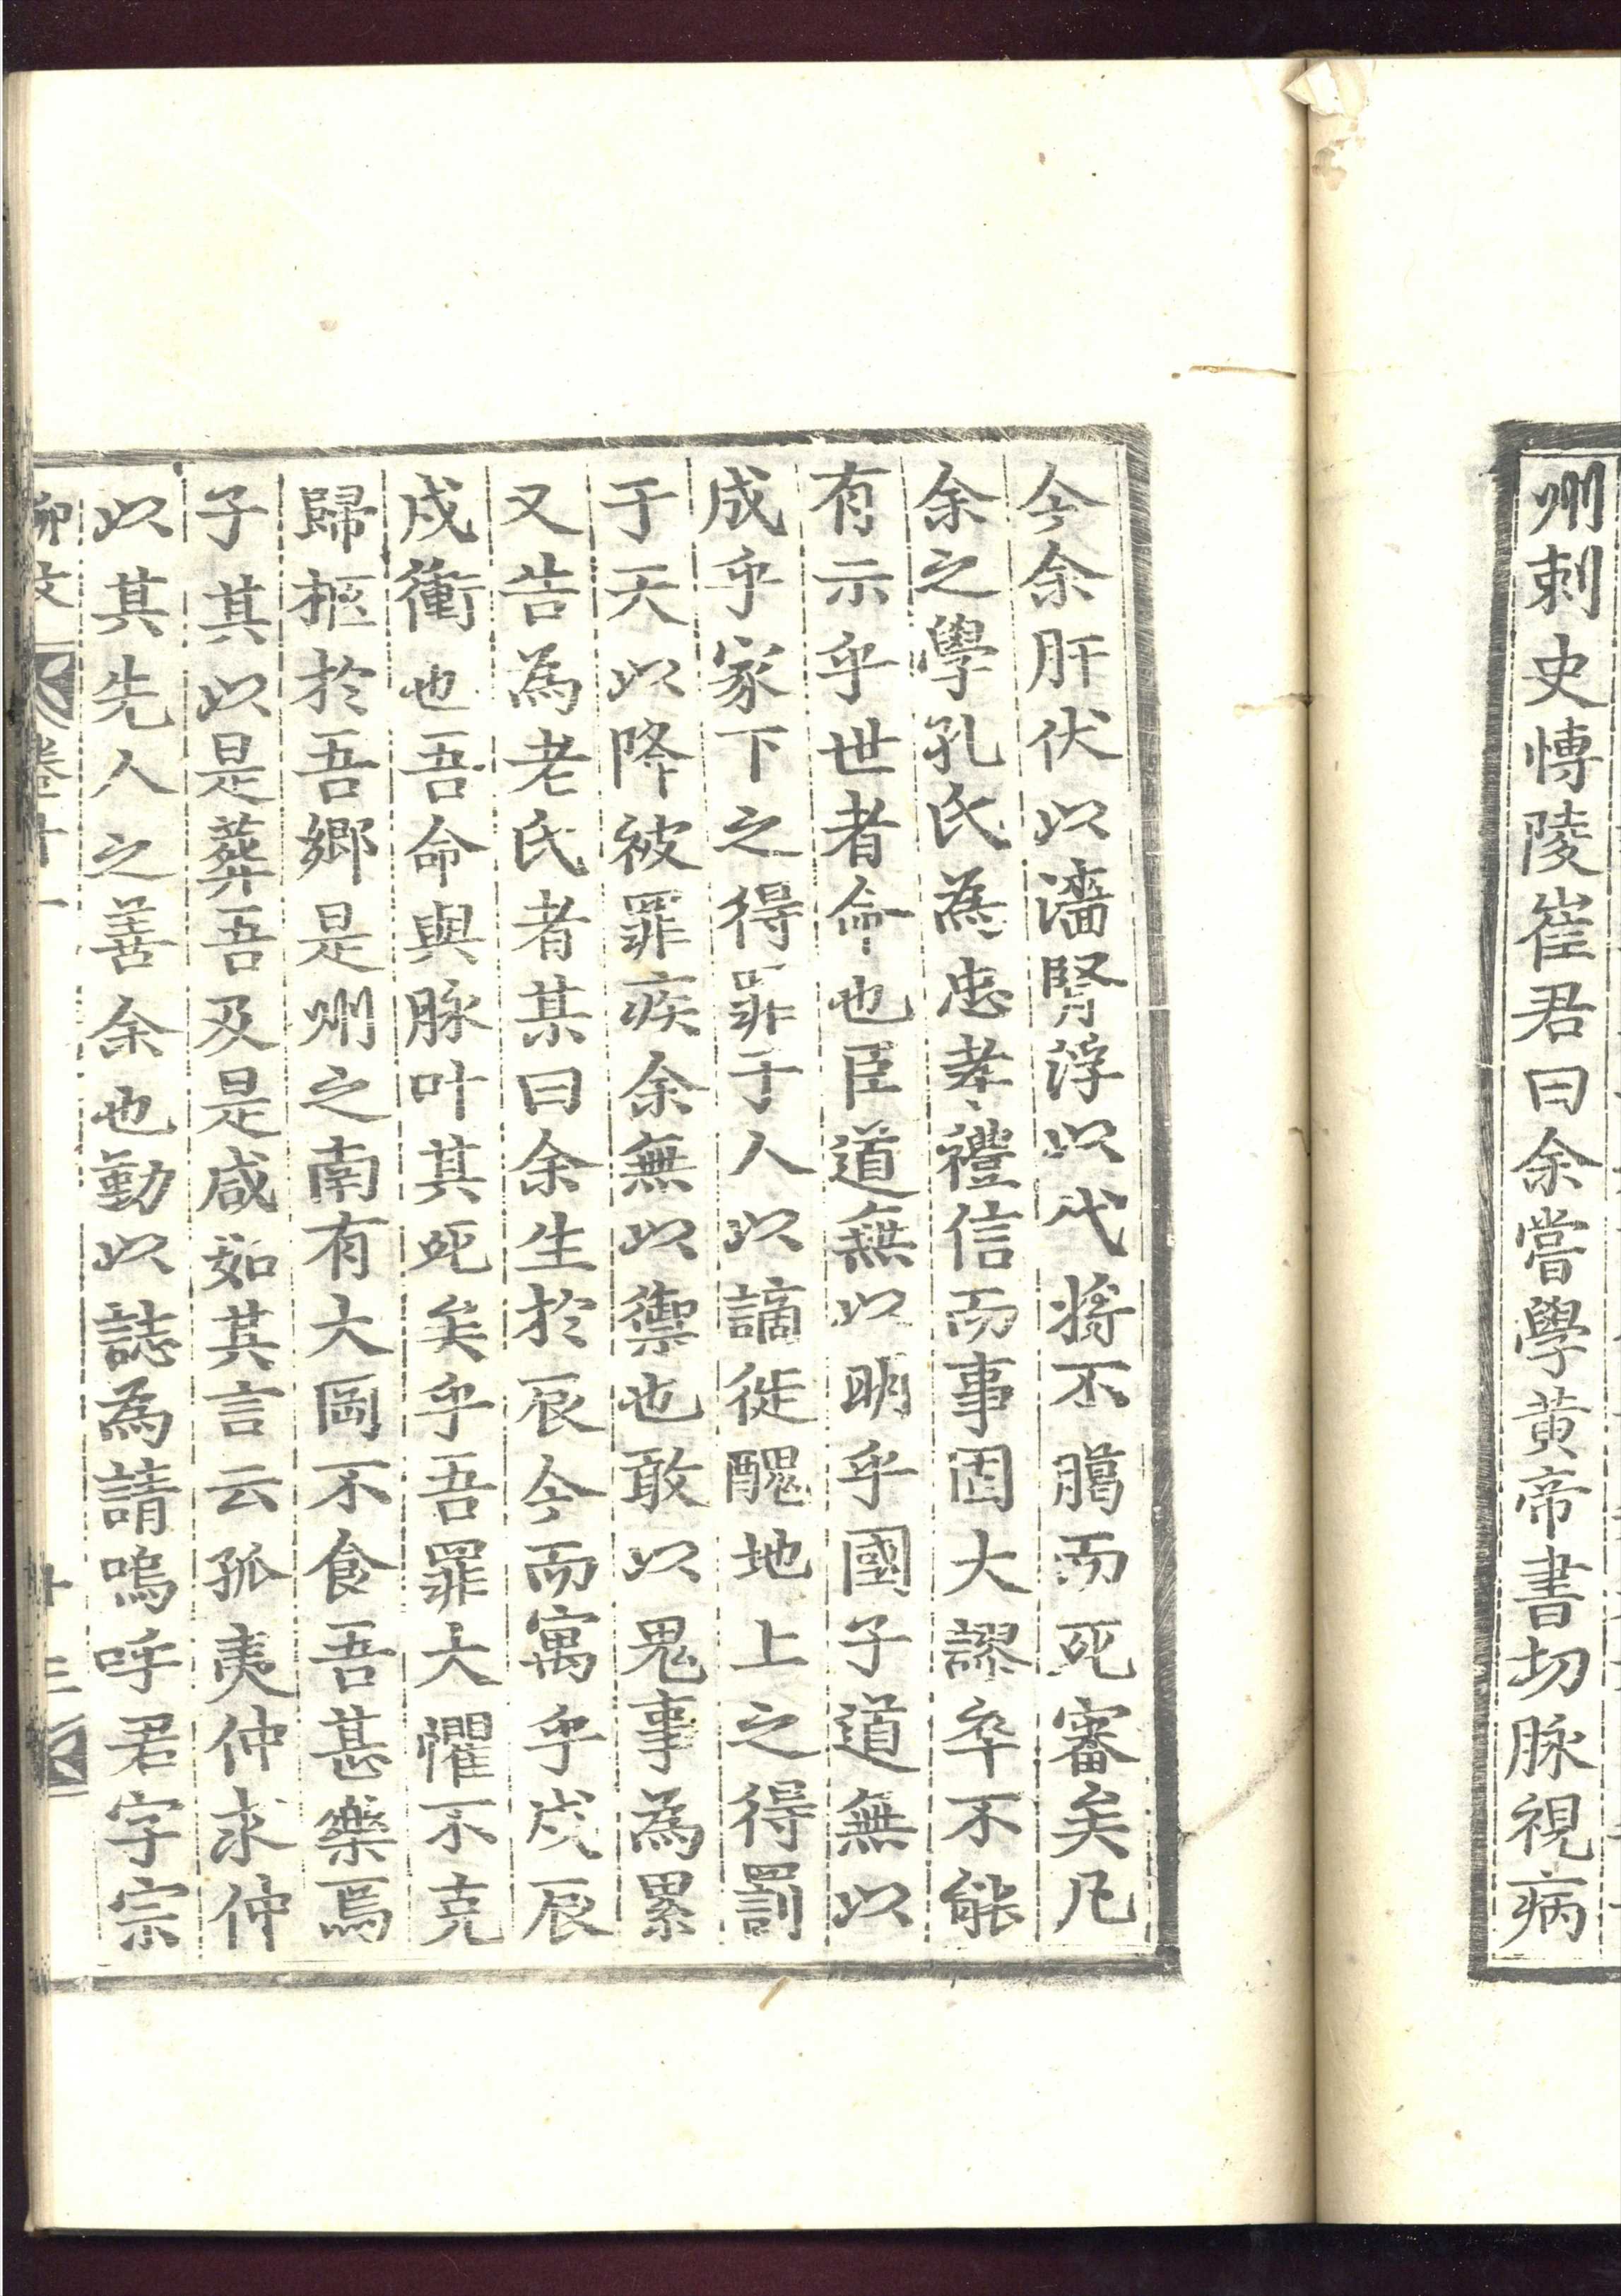 州刺史博陵崔君曰余嘗學黃帝書切脉視病
今余肝伏以濇腎浮以代將不臈而死審矣凡
余之學孔氏為忠孝禮信而事固大謬卒不能
有示乎世者命也臣道無以明乎國子道無以
成乎家下之得罪于人以謫徙醜地上之得罰
于天以降被罪疾余無以禦也敢以鬼事為累
又告為老氏者某曰余生於辰今而寓乎戌辰
戌衝也吾命與脉叶其死矣乎吾罪大懼不克
歸柩於吾鄉是州之南有大岡不食吾甚樂焉
子其以是葬吾及是咸如其言云孤夷仲求仲
以其先人之善余也勤以誌為請嗚呼君字宗
柳文 卷十一 十三